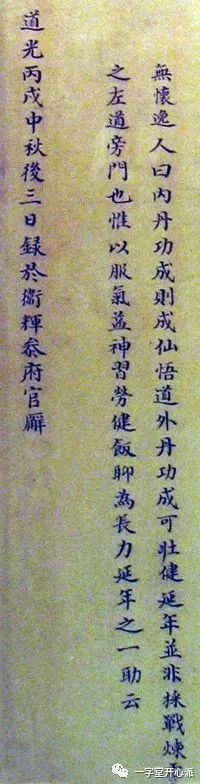 無懷逸人曰內丹功成則成仙悟道外丹功成可壯健延年並非採戰煉
之左道旁門也惟以服氣益神習勞健飯聊為長力延年之一助云
道光丙戌中秋後三日録於衞輝叅府官廨
一字堂开心派